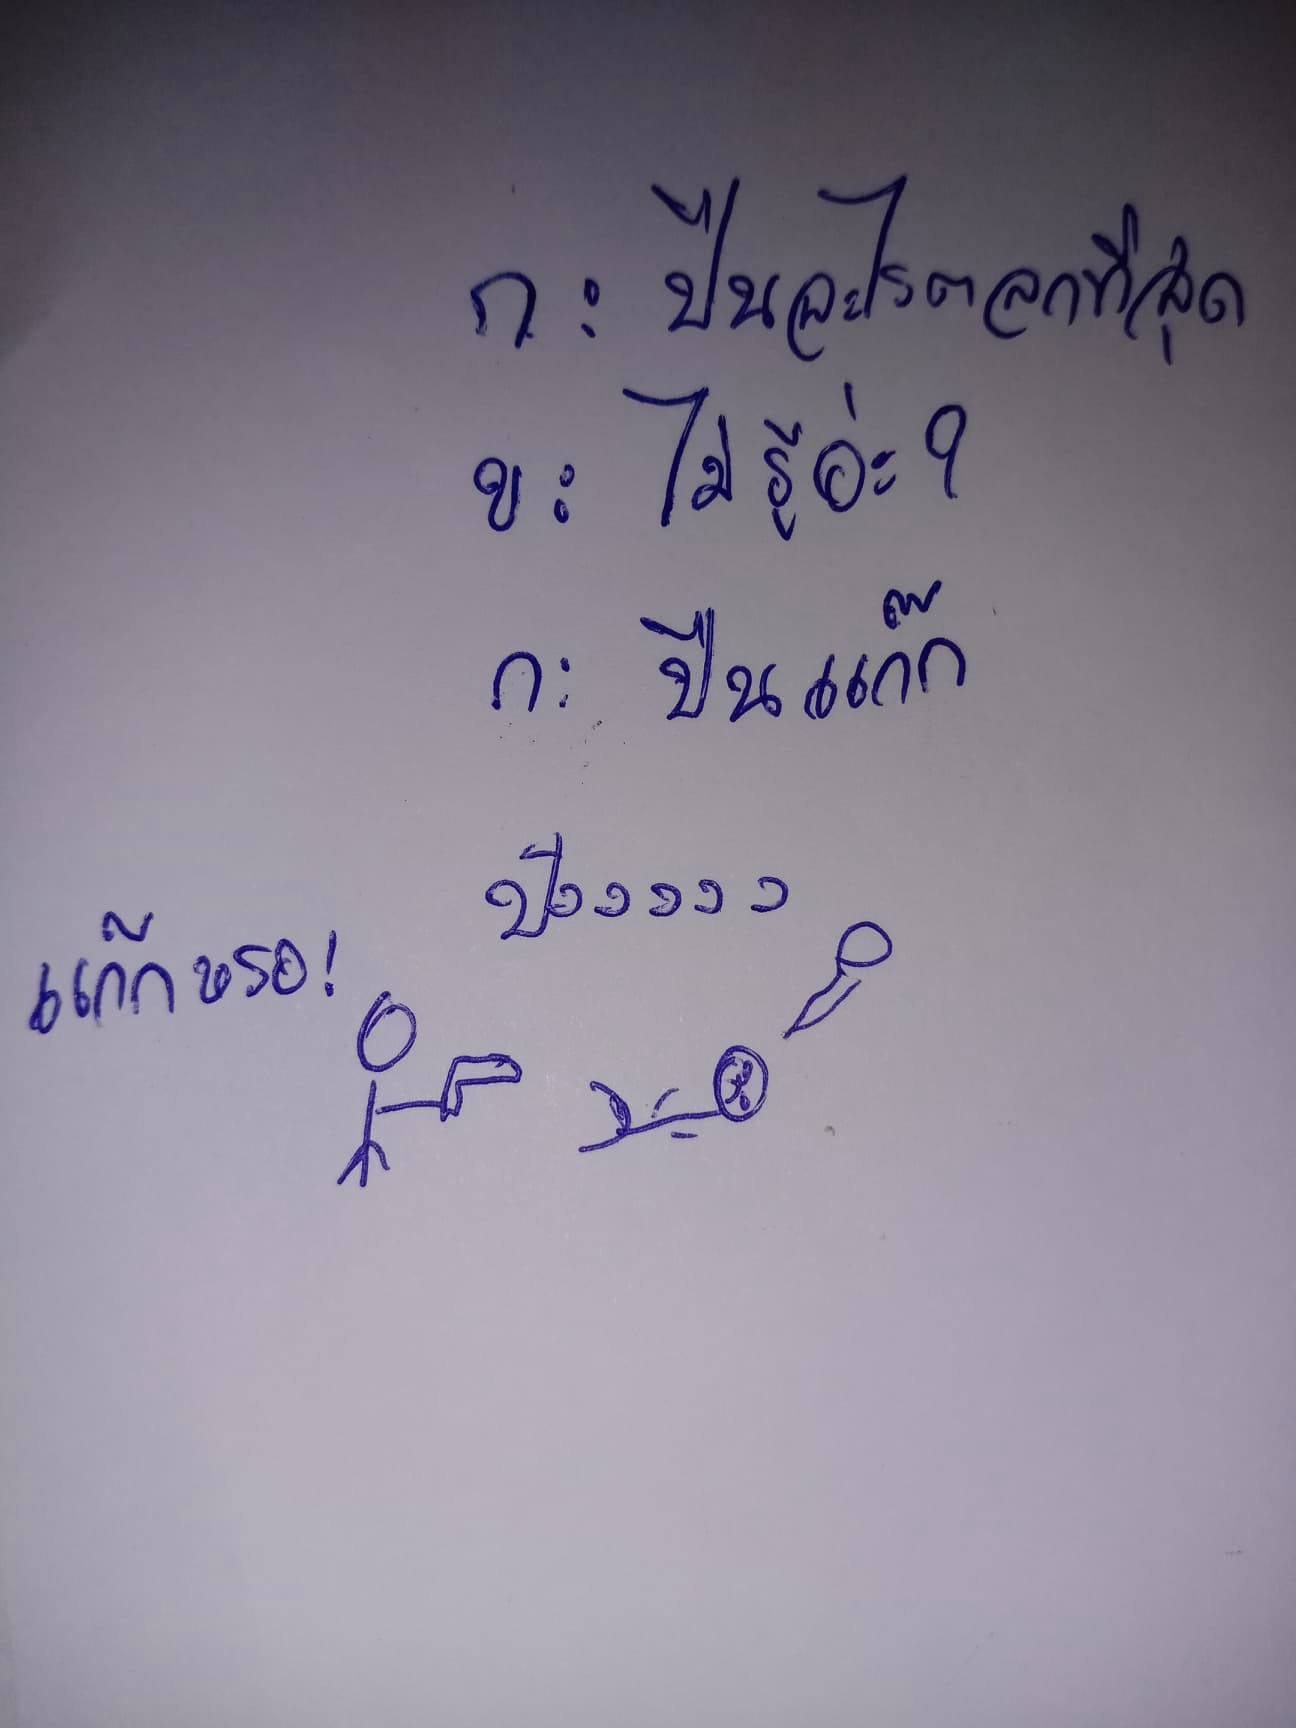 ก : ปืนอะไรตลกที่สุด
ข : ไม่รู้อ่ะ ?
ก : ปืนแก๊ก
ปังงงงง
แก๊กหรอ!